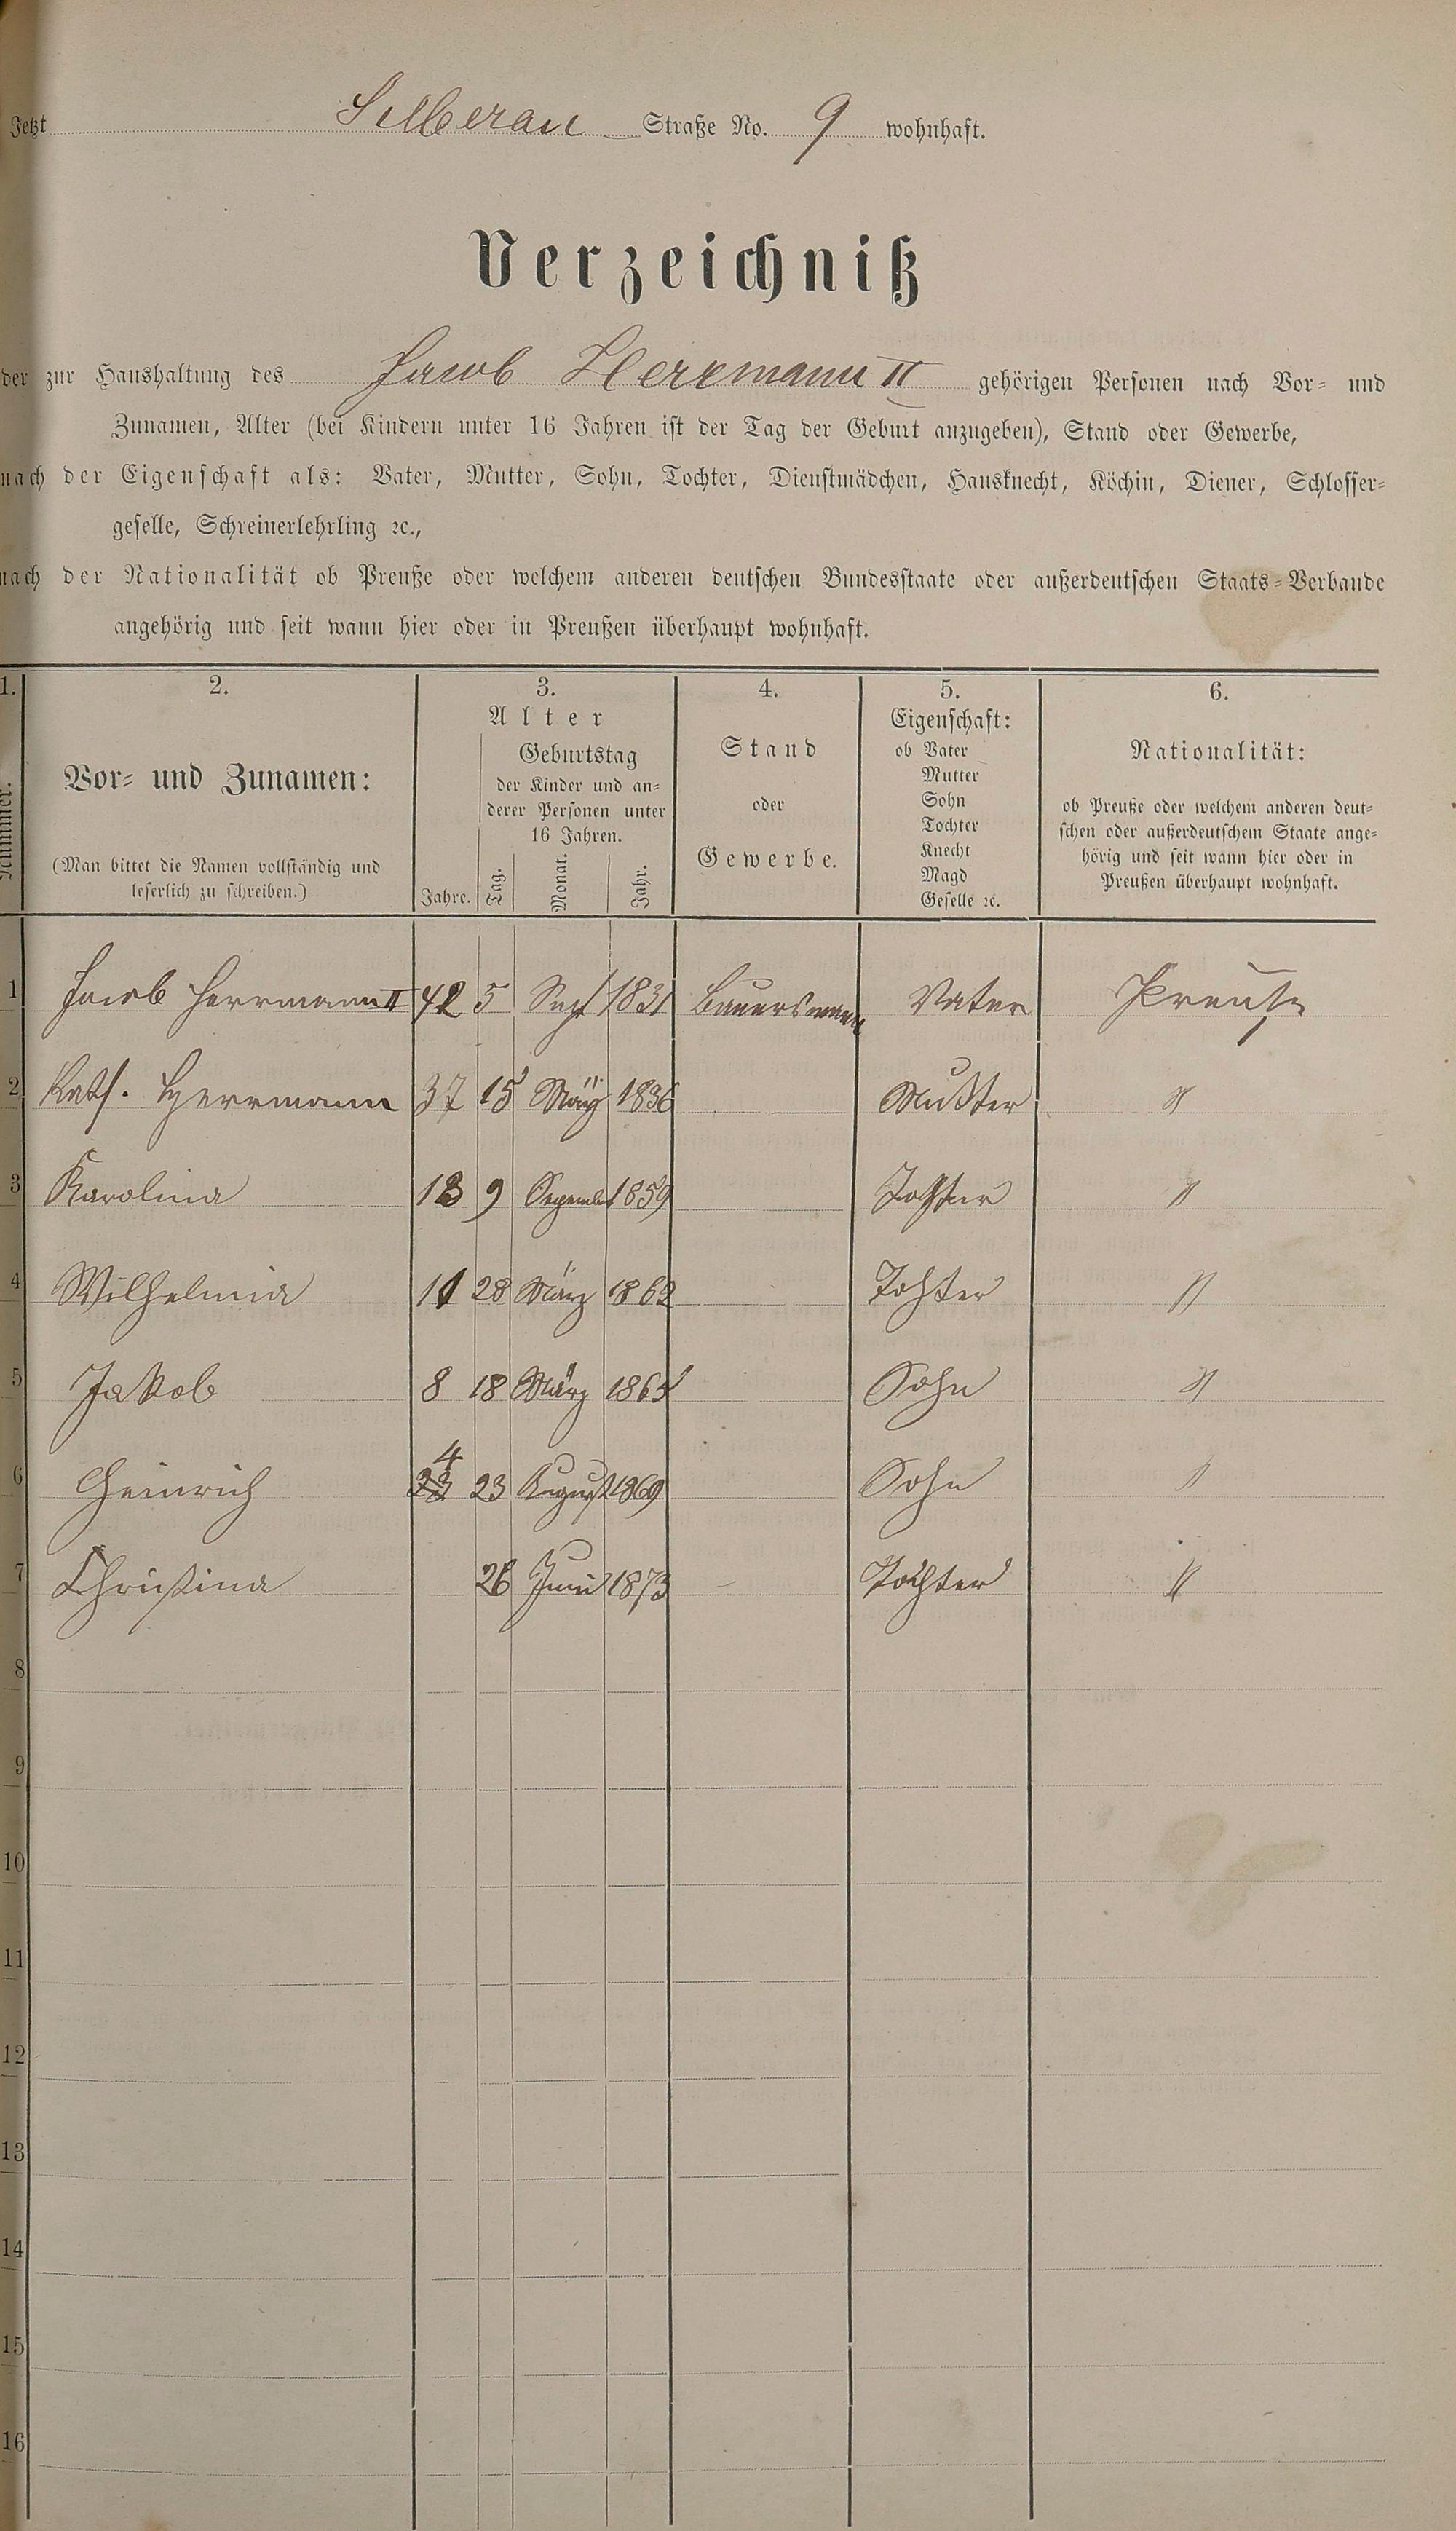 Jetzt Silberau Straße No. 9 wohnhaft.
Verzeichniß
der zur Haushaltung des Jacob Herrmann II gehörigen Personen nach Vor- und
Zunamen, Alter (bei Kindern unter 16 Jahren ist der Tag der Geburt anzugeben), Stand oder Gewerbe,
nach der Eigenschaft als: Vater, Mutter, Sohn, Tochter, Dienstmädchen, Hausknecht, Köchin, Diener, Schlosser-
geselle, Schreinerlehrling ꝛc.,
nach der Nationalität ob Preuße oder welchem anderen deutschen Bundesstaate oder außerdeutschen Staats-Verbande
angehörig und seit wann hier oder in Preußen überhaupt wohnhaft.
1. 2. 3. 4. 5. 6.
Nummer.
Vor- und Zunamen:
(Man bittet die Namen vollständig und
leserlich zu schreiben.)
Alter
Geburtstag
der Kinder und an-
derer Personen unter
16 Jahren.
Jahre. Tag. Monat. Jahr.
Stand
oder
Gewerbe.
Eigenschaft:
ob Vater
Mutter
Sohn
Tochter
Knecht
Magd
Geselle ꝛc.
Nationalität:
ob Preuße oder welchem anderen deut-
schen oder außerdeutschem Staate ange-
hörig und seit wann hier oder in
Preußen überhaupt wohnhaft.
1 Jacob Herrmann II 42 5 Sept 1831 Bauersmann Vater Preuße
2 Kath. Herrmann 37 15 März 1836 Mutter "
3 Karolina 13 9 September 1859 Tochter "
4 Wilhelmina 11 28 März 1862 Tochter "
5 Jakob 8 18 März 1865 Sohn "
6 Heinrich 4 23 August 1869 Sohn "
7 Christina 26 Juni 1873 Tochter "
8
9
10
11
12
13
14
15
16